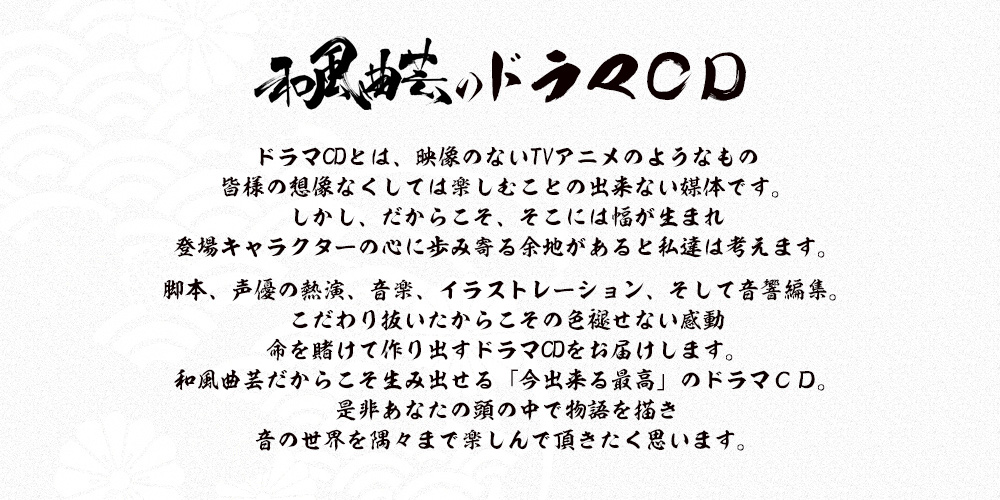 和風曲芸のドラマCD
ドラマCDとは、映像のないTVアニメのようなもの
皆様の想像なくしては楽しむことの出来ない媒体です。
しかし、だからこそ、そこには幅が生まれ
登場キャラクターの心に歩み寄る余地があると私達は考えます。
脚本、声優の熱演、音楽、イラストレーション、そして音響編集。
こだわり抜いたからこその色褪せない感動
命を賭けて作り出すドラマCDをお届けします。
和風曲芸だからこそ生み出せる「今出来る最高」のドラマＣＤ。
是非あなたの頭の中で物語を描き
音の世界を隅々まで楽しんで頂きたく思います。